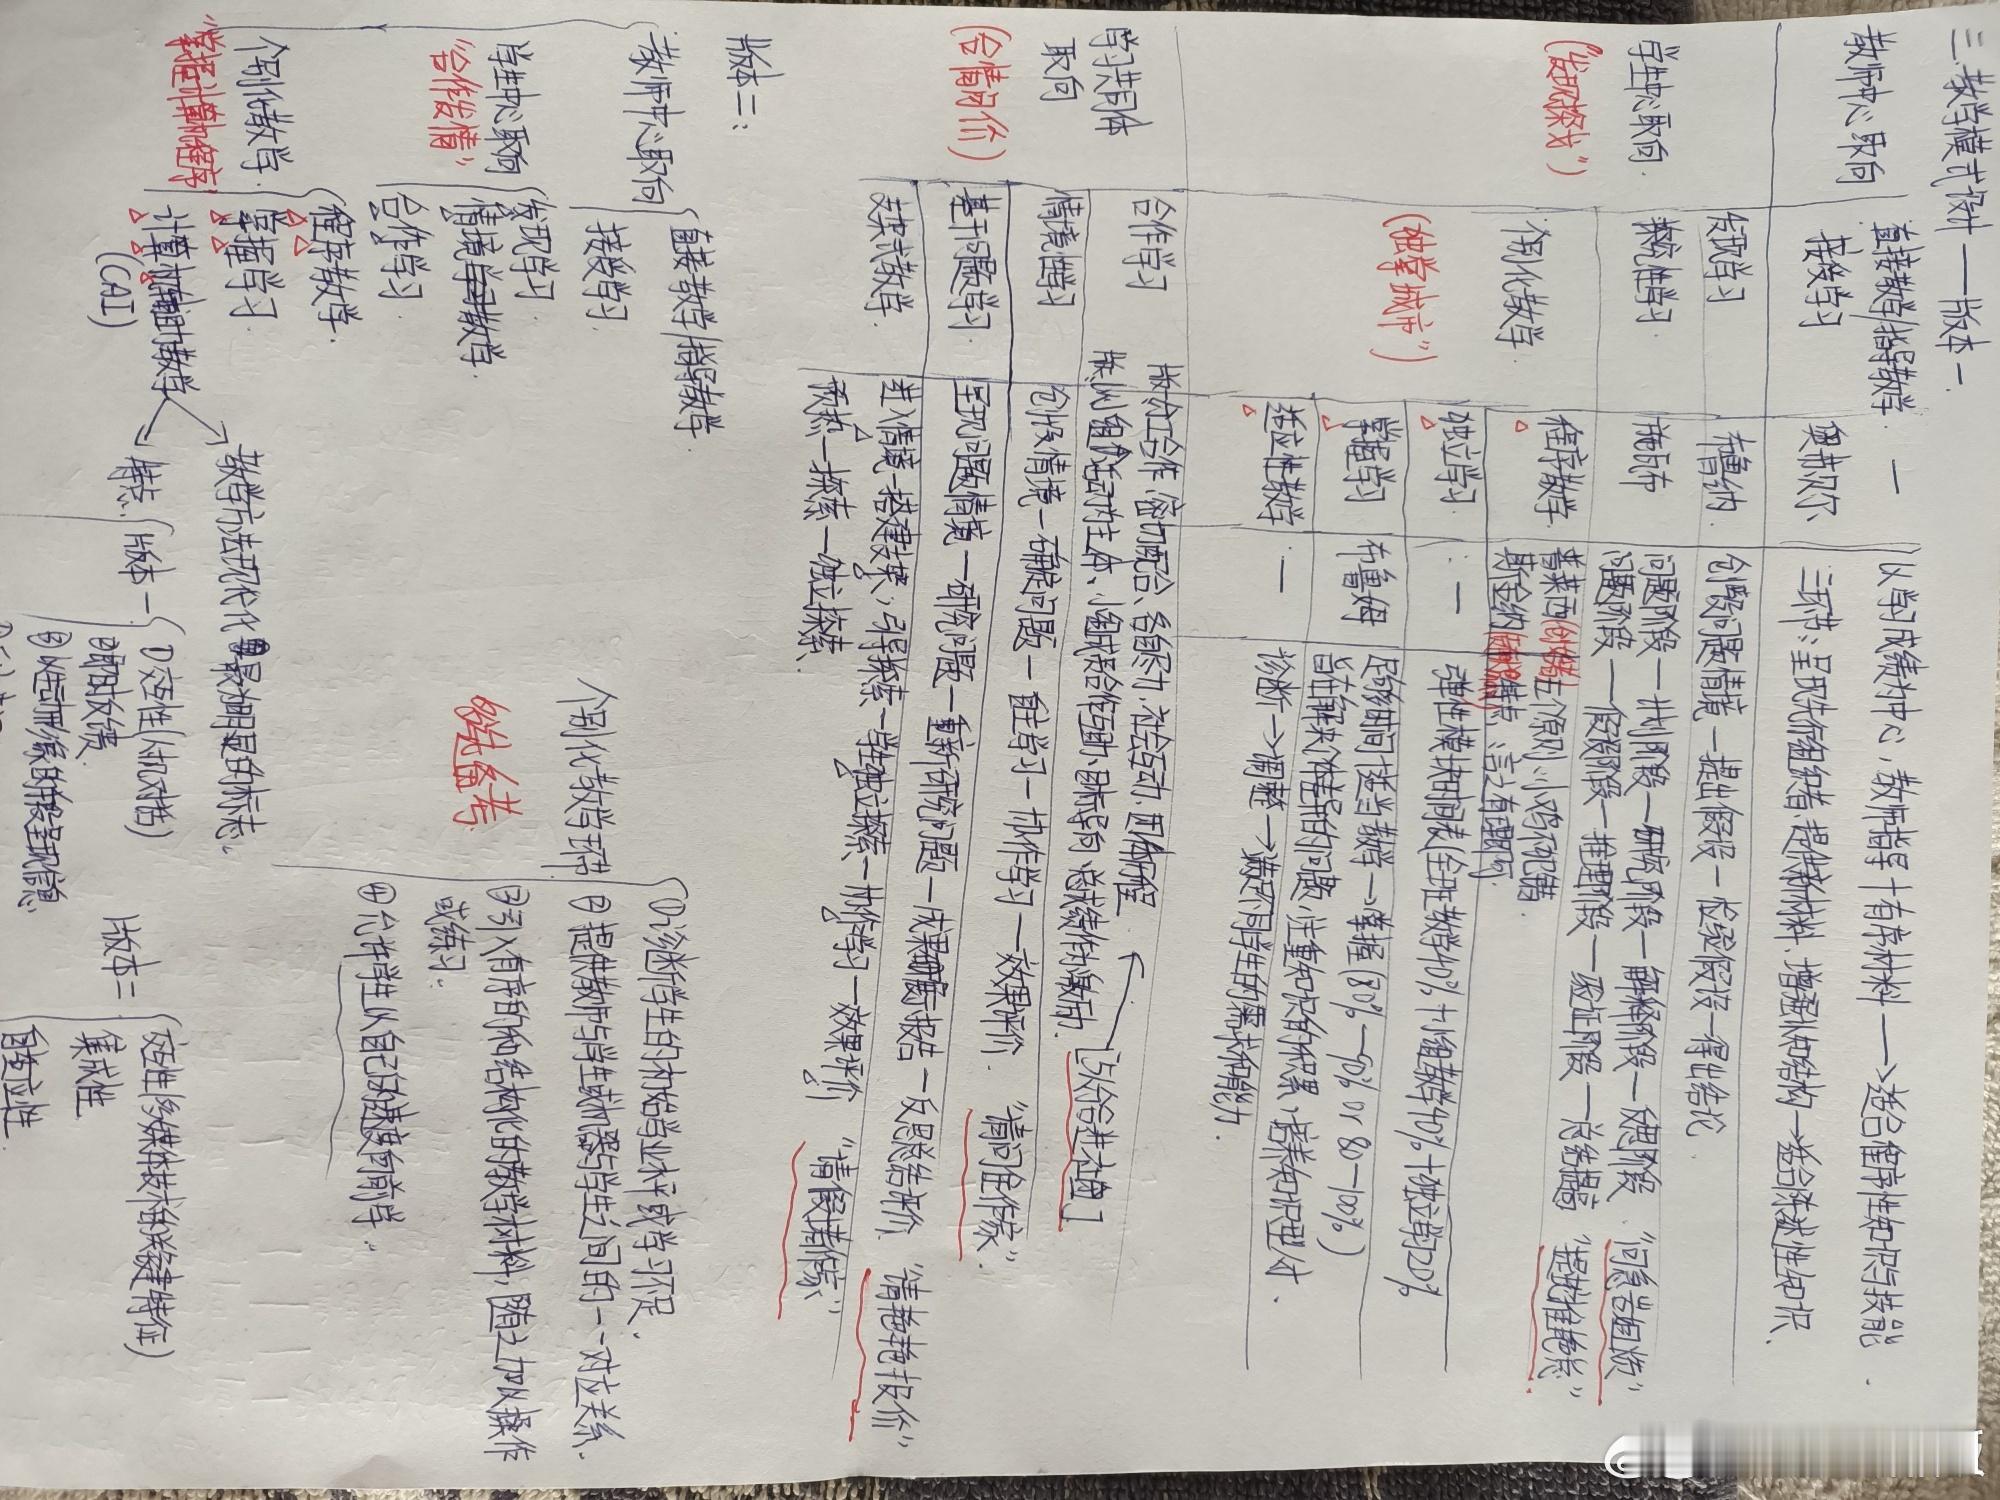 三、教学模式设计——版本一.
教师中心取向
直接教学/指导教学 — 以学习成绩为中心,教师指导+有序材料→适合程序性知识与技能.
接受学习 奥苏贝尔 三环节:呈现先行组织者、提供新材料、增强认知结构→适合陈述性知识.
学生中心取向
(“发现探戈”)
发现学习 布鲁纳. 创设问题情境—提出假设—检验假设—得出结论
探究性学习 施瓦布 问题阶段—计划阶段—研究阶段—解释阶段—反思阶段 “问急营姐烦”
问题阶段—假设阶段—推理阶段—验证阶段—总结提高
个别化教学
(“独掌城市”)
程序教学 普莱西创始
斯金纳 五个原则:小鸡死错
独立学习. — 弹性模块时间表(全班教学40%+小组教学40%+独立学习20%
掌握学习 布鲁姆 足够时间+适当教学→掌握(80%—90% or 80—100%)
旨在解决
适应性教学 — 诊断→调整→满足不同学生的需求和能力.
学习共同体
取向
(合情问价)
合作学习 分工合作、密切配合、各自尽力、社会互动、团体历程
以小组活动为主体、小组成员合作互动、目标导向、总成绩作为激励.
[分合进社团]
情境性学习 创设情境—确定问题—自主学习—协作学习—效果评价. “情问自作家”
基于问题学习 呈现问题情境—研究问题—重新研究问题—成果展示报告—反思总结评价
支架式教学. 进入情境—搭建支架,引导探索—学生独立探索—协作学习—效果评价
预热—探索—独立探索.
版本二:
教师中心取向
直接教学/指导教学
接受学习
学生中心取向
“合作发情”
发现学习
情境与教学
合作学习
个别化教学.
“掌程计算机程序”
程序教学
掌握学习
计算机辅助教学
(CAI)
教学方法现代化最为明显的标志.
特点
版本一
①交互性(人机对话)
②即时反馈
③以生动形象的手段呈现信息
版本二
交互性(多媒体技术很关键特征)
集成性
自适应性
个别化教学环节
①诊断学生的初始学业水平或学习不足.
②提供教师与学生或机器与学生之间的一一对应关系.
③引入有序的和结构化的教学材料,随之加以操作
或练习.
④允许学生从自己的速度向前学.